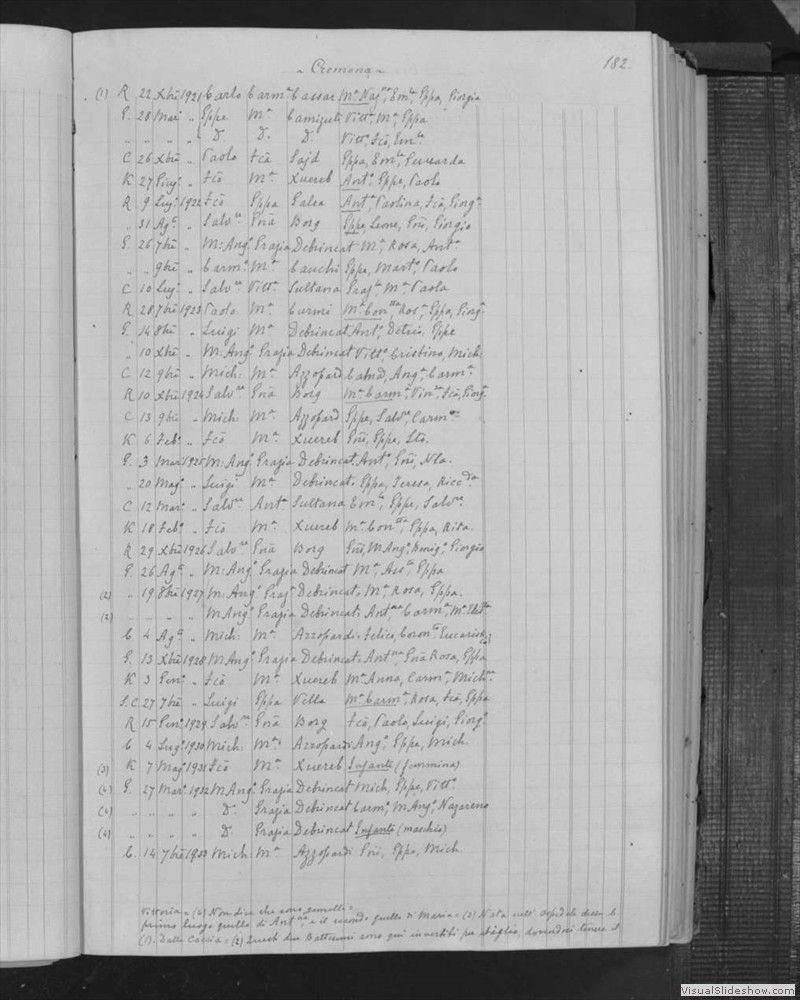 Cremona
182.
(1) R 22 Xbre 1921 Carlo Carmª Cassar Mª Naz, Emª, Gppa, Giorgia
G. 28 Mar „ Gppe Mª Camigieli Vittª Mª, Gppa
„ „ „ „ D. D. D. Vittª, Fcõ, Emª
C 26 Xbre „ Paolo Fcã Sajd Gppa, Emª,
K 27 „ Fcõ Mª Xuereb Antª, Gppa, Paolo
R 9 1922 Fcõ Gppa Galea Antª, Paolina, Fcã, Giorgª
„ 31 Agº „ Salvre Gnã Borg Gppe, Leone, Gnĩ, Giorgio
G. 26 7bre „ M: Angº Grazia Debrincat Mª, Rosa, Antª
„ „ 9bre „ Carmº Mª Cauchi Gppe, Martª, Paolo
C 10 „ Salvre Vittª Sultana Grazª Mª Paola
R 28 7bre 1923 Paolo Mª Curmi Mª Conta, Rosª, Gppa, Giorgª
G 14 8bre „ Luigi Mª Debrincat Antª, Gppe
„ 10 Xbre „ M: Angº Grazia Debrincat Vittª Cristina, Mich:
C 12 9bre „ Mich: Mª Azzopard Angª, Carmª
R 10 Xbre 1924 Salvre Gnã Borg Mª Carmª, Fcã, Giorgª
C 13 9bre „ Mich Mª Azzopard Gppe, Salvre, Carmª
K 6 Febº „ Fcõ Mª Xuereb Gnĩ, Gppe,
G. 3 Mar 1925 M: Angº Grazia Debrincat Antº, Gnĩ, Nla.
„ 20 Magº „ Luigi Mª Debrincat Gppa, Teresa, Riccda
C 12 Marº „ Salvre Antª Sultana Emª, Gppe, Salvre
K 18 Febº „ Fcõ Mª Xuereb Mª Conta, Gppa, Rita.
R 29 Xbre 1926 Salvre Gnã Borg Gnĩ, M Angº, Giorgio
G. 26 Agº „ M: Angº Grazia Debrincat Mª, Assª, Gppa
(2) „ 19 8bre 1927 M: Angº Grazª Debrincat. Mª Rosa, Gppa.
(2) „ „ „ „ M Angº Grazia Debrincat. Carmª, Mª
C 4 Agº „ Mich: Mª Azzopardi Felice,
G. 13 Xbre 1928 M Angº Grazia Debrincat. Gnã Rosa, Gppa
K 3 Genº „ Fcõ Mª Xuereb Mª Anna, Carmª,
S.C. 27 7bre „ Luigi Gppa Vella Mª Carmª, Rosa, Fcã, Gppa
R 15 Genº 1929 Salvre Gnã Borg Fcõ, Paolo, Luigi, Giorgº
C 4 1930 Mich: Mª Azzopardi Angº, Gppe, Mich
(3) K 7 Magº 1931 Fcõ Mª Xuereb Infante (femmina)
(4) G. 27 Marº 1932 M Angº Grazia Debrincat Mich, Gppe, Vittº
(4) „ „ „ „ D. Grazia Debrincat Carmº, M Angº, Nazareno
(4) „ „ „ „ D. Grazia Debrincat Infante (maschio)
C. 14 7bre 1933 Mich: Mª Azzopardi Gnĩ, Gppe, Mich
Vittoria = (4) Non dice che sono gemelle =
primo luogo quello di e il secondo quello di Maria = (3) Nata nell' Ospedale
(1). Dalla = (2) Questi due Battesimi sono qui invertiti per sbaglio, dovendosi tenere il
VisualSlideshow.com